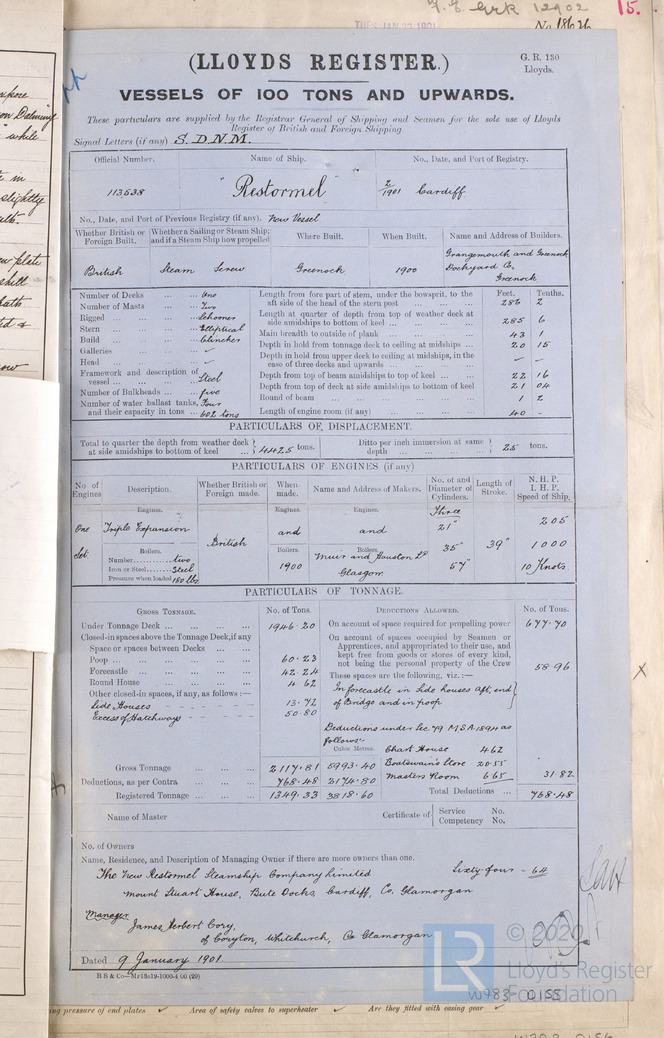 TUES. JAN 22 1901
No. 18626
15.
(LLOYDS REGISTER.)
G. R. 130
Lloyds.
VESSELS OF 100 TONS AND UPWARDS.
These particulars are supplied by the Registrar General of Shipping and Seamen for the sole use of Lloyds
Register of British and Foreign Shipping.
Signal Letters (if any) S.D.N.M.
Official Number. Name of Ship. No., Date, and Port of Registry.
113,538 "Restormel" 2/1901 Cardiff
No., Date, and Port of Previous Registry (if any). New Vessel
Whether British or Foreign Built. Whether a Sailing or Steam Ship; and if a Steam Ship how propelled Where Built. When Built. Name and Address of Builders.
British Steam Screw Greenock 1900 Grangemouth and Greenock Dockyard Co. Greenock
Number of Decks ... ... One
Number of Masts ... ... Two
Rigged ... ... ... Schooner
Stern ... ... ... Elliptical
Build ... ... ... Clincher
Galleries ... ... ... ✓
Head ... ... ... ✓
Framework and description of vessel ... ... ... Steel
Number of Bulkheads ... five
Number of water ballast tanks, Four
and their capacity in tons ... 602 tons
Feet. Tenths.
Length from fore part of stem, under the bowsprit, to the aft side of the head of the stern post 286 2
Length at quarter of depth from top of weather deck at side amidships to bottom of keel ... 285 6
Main breadth to outside of plank ... 43 1
Depth in hold from tonnage deck to ceiling at midships ... 20 15
Depth in hold from upper deck to ceiling at midships, in the case of three decks and upwards ... – –
Depth from top of beam amidships to top of keel ... 22 16
Depth from top of deck at side amidships to bottom of keel 21 04
Round of beam ... 1 2
Length of engine room (if any) ... 40 -
PARTICULARS OF DISPLACEMENT.
Total to quarter the depth from weather deck at side amidships to bottom of keel ... 4425 tons. Ditto per inch immersion at same depth ... 25 tons.
PARTICULARS OF ENGINES (if any)
No of Engines Description. Whether British or Foreign made. When made. Name and Address of Makers. No. of and Diameter of Cylinders. Length of Stroke. N. H. P. I. H. P. Speed of Ship.
Engines. Engines. Engines. Three
One Triple Expansion and and 21" 205
British
Set Boilers. Boilers. Boilers. 35" 39" 1000
Number two Muir and Houston Ld
Iron or Steel Steel 1900 Glasgow 57" 10 Knots
Pressure when loaded 180 lbs
PARTICULARS OF TONNAGE.
GROSS TONNAGE. No. of Tons. DEDUCTIONS ALLOWED. No. of Tons.
Under Tonnage Deck ... 1946.20
Closed-in spaces above the Tonnage Deck, if any
Space or spaces between Decks ...
Poop ... 60.23
Forecastle ... 42.24
Round House ... 4 62
Other closed-in spaces, if any, as follows :—
Side Houses 13.72
Excess of Hatchways 50.80
On account of space required for propelling power 677.70
On account of spaces occupied by Seamen or
Apprentices, and appropriated to their use, and
kept free from goods or stores of every kind,
not being the personal property of the Crew 58.96
These spaces are the following, viz. :—
In forecastle in side houses aft, end
of Bridge and in poop
Deductions under Sec 79 M.S.A. 1894 as
follows-
Cubic Metres. Chart House 4 62
Boatswain's Store 20.55
Masters Room 6 65 31.82
Gross Tonnage ... 2117.81 5993.40
Deductions, as per Contra ... 768.48 2174.80
Registered Tonnage ... 1349.33 3818.60
Total Deductions ... 768.48
Name of Master Certificate of Service No. Competency No.
No. of Owners
Name, Residence, and Description of Managing Owner if there are more owners than one.
The New Restormel Steamship Company Limited Sixty four - 64
Mount Stuart House, Bute Docks, Cardiff, Co. Glamorgan
Manager
James Herbert Cory,
of Coryton, Whitchurch, Co Glamorgan
Dated 9 January 1901
B S & Co—Mr18s19-1000-4 00 (29)
LR
© 2020
Lloyd's Register
Foundation
W983 0155
pressure of end plates Area of safety valves to superheater Are they fitted with easing gear